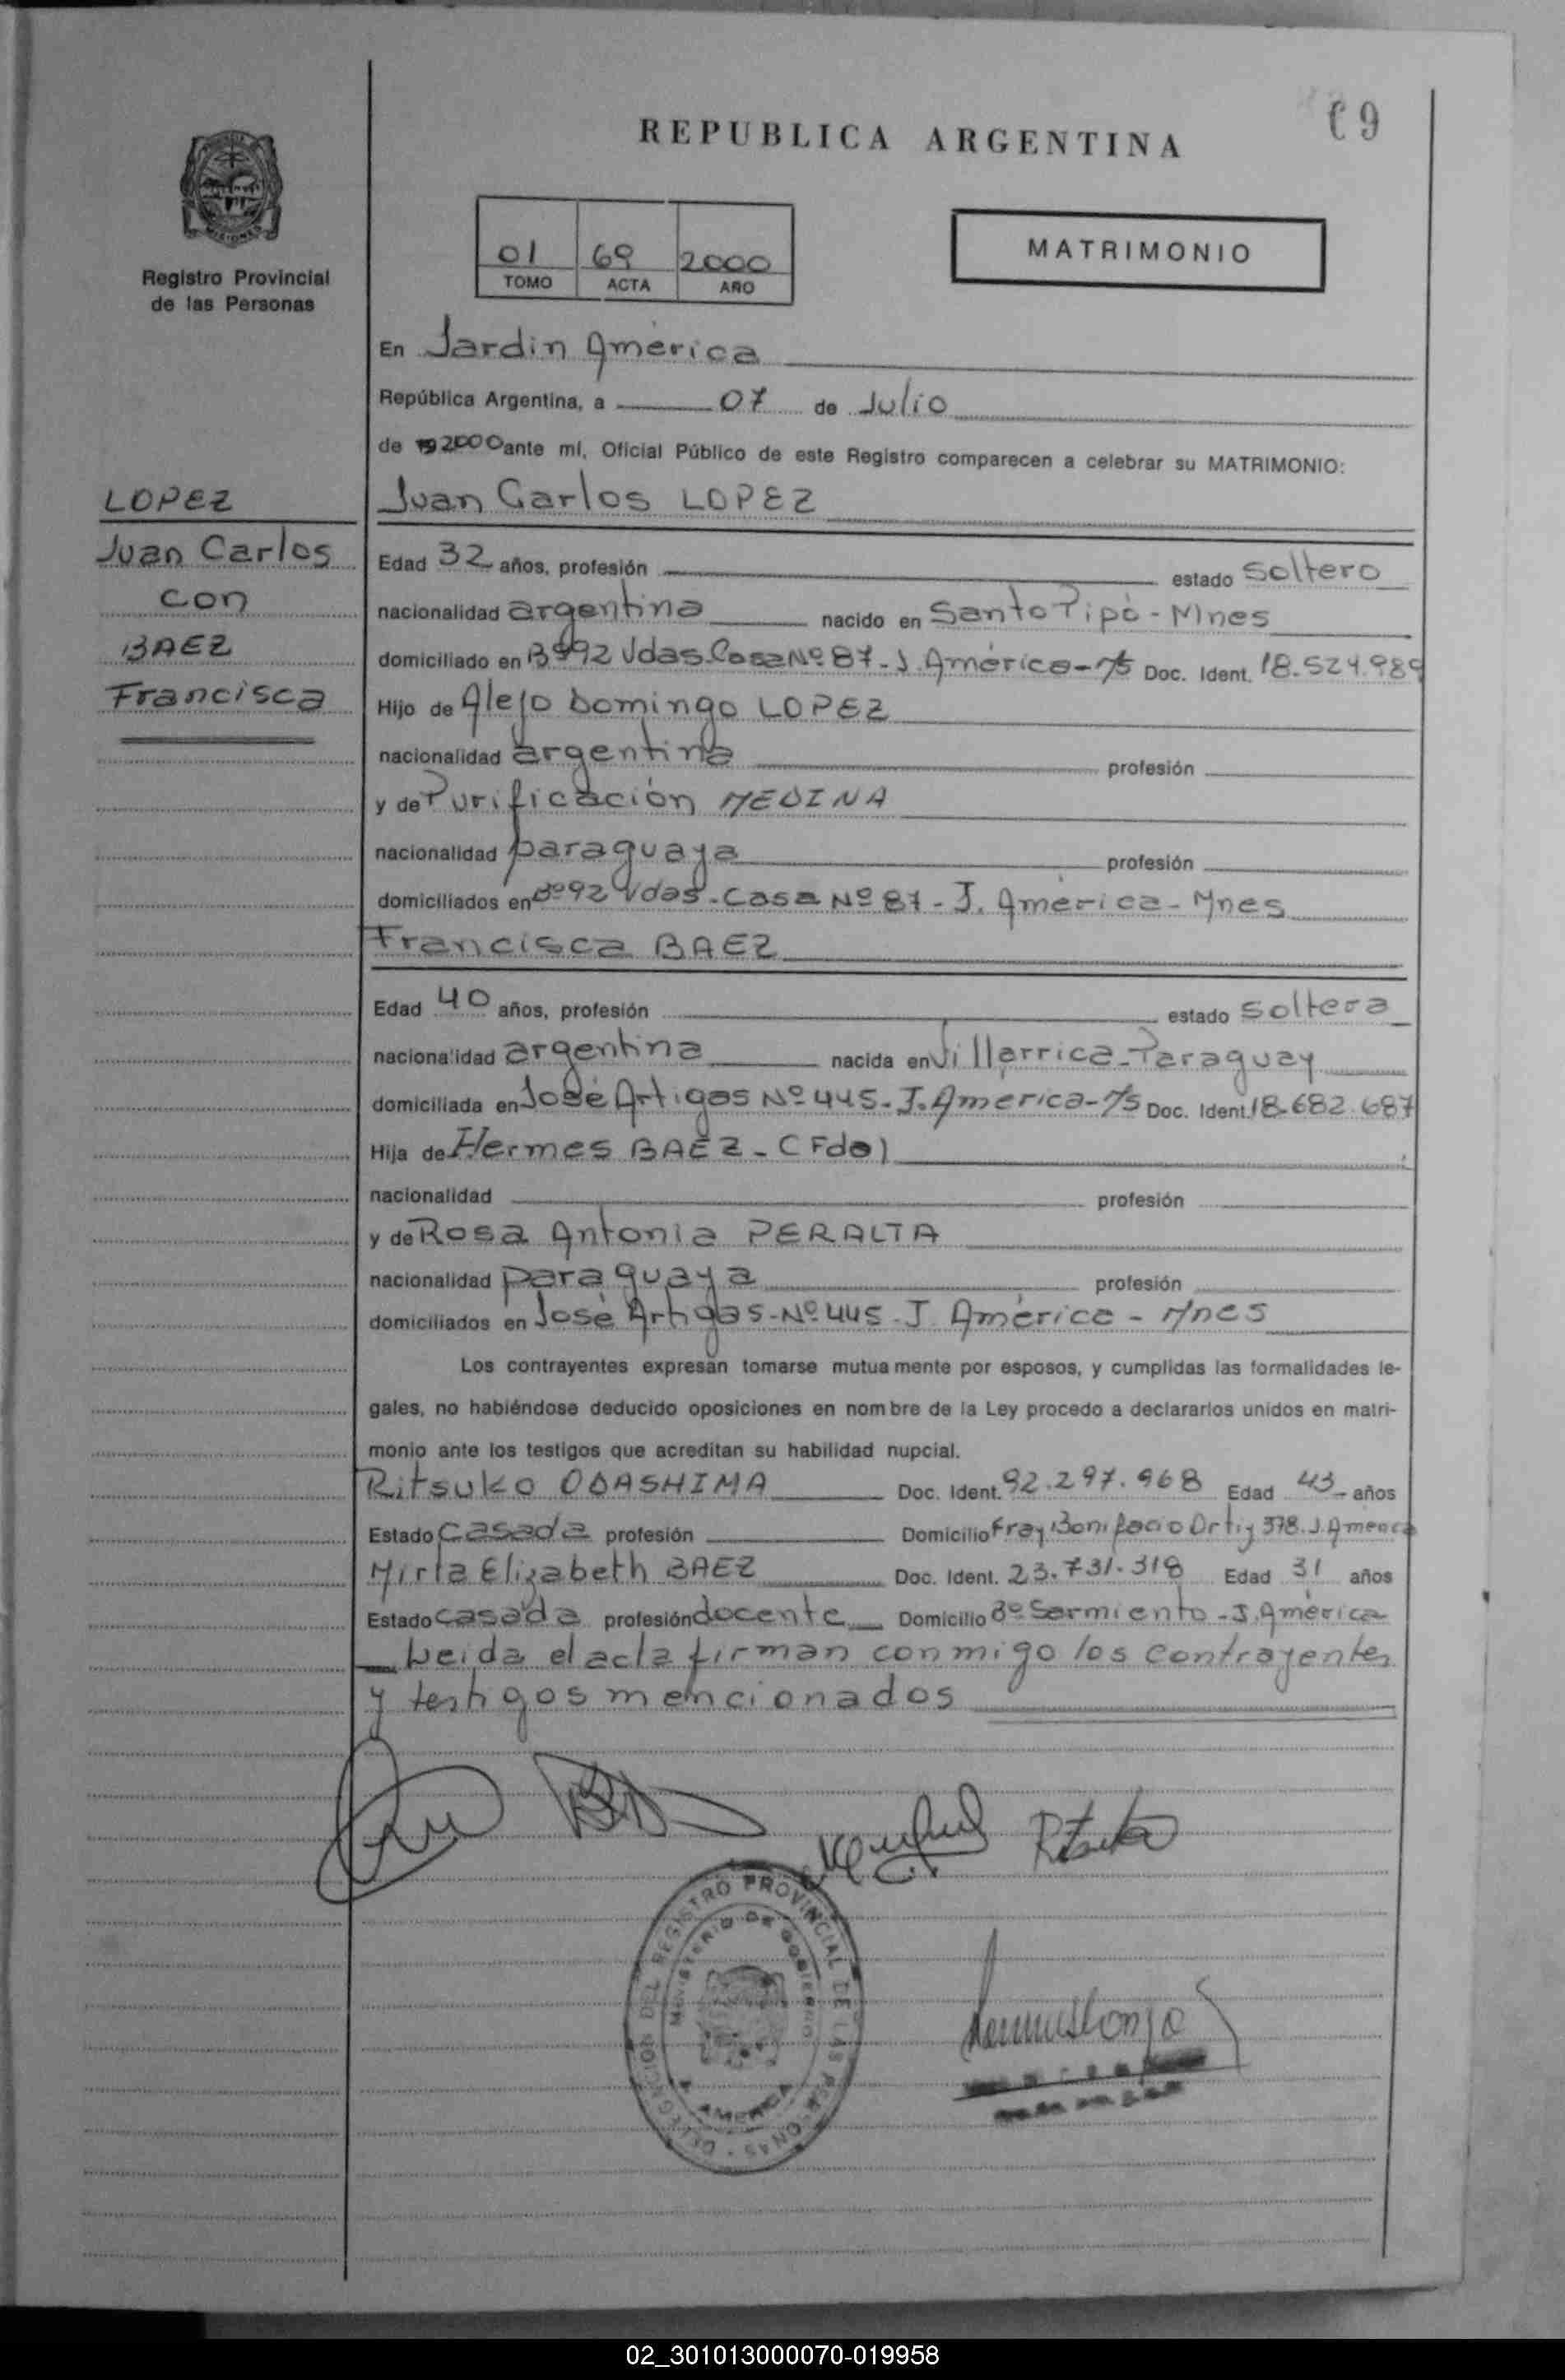 69
REPUBLICA ARGENTINA
MISIONES
Registro Provincial
de las Personas
01 69 2000
TOMO ACTA AÑO
MATRIMONIO
En Jardin América
República Argentina, a 07 de Julio
de 19 2000 ante mí, Oficial Público de este Registro comparecen a celebrar su MATRIMONIO:
LOPEZ
Juan Carlos
con
BAEZ
Francisca
Juan Carlos LOPEZ
Edad 32 años, profesión estado soltero
nacionalidad argentina nacido en Santo Pipó - Mnes
domiciliado en Bº92 Vdas. Casa Nº 87 - J. América - Doc. Ident. 18.524.989
Hijo de Alejo Domingo LOPEZ
nacionalidad argentina profesión
y de Purificación MEDINA
nacionalidad paraguaya profesión
domiciliados en Bº92 Vdas - Casa Nº 87 - J. América - Mnes
Francisca BAEZ
Edad 40 años, profesión estado soltera
nacionalidad argentina nacida en Villarrica - Paraguay
domiciliada en José Artigas Nº 445 - J. América - Doc. Ident. 18.682.687
Hija de Hermes BAEZ - (Fdo)
nacionalidad profesión
y de Rosa Antonia PERALTA
nacionalidad paraguaya profesión
domiciliados en José Artigas - Nº 445 - J. América - Mnes
Los contrayentes expresan tomarse mutuamente por esposos, y cumplidas las formalidades le-
gales, no habiéndose deducido oposiciones en nombre de la Ley procedo a declararlos unidos en matri-
monio ante los testigos que acreditan su habilidad nupcial.
Ritsuko ODASHIMA Doc. Ident. 92.297.968 Edad 43 años
Estado Casada profesión Domicilio Fray Bonifacio Ortiz 378. J. América
Mirta Elizabeth BAEZ Doc. Ident. 23.731.318 Edad 31 años
Estado casada profesión docente Domicilio Bº Sarmiento - J. América
Leida el acta firman conmigo los contrayentes
y testigos mencionados
DELEGACION DEL REGISTRO PROVINCIAL DE LAS PERSONAS
MINISTERIO DE GOBIERNO
AMERICA
02_301013000070-019958